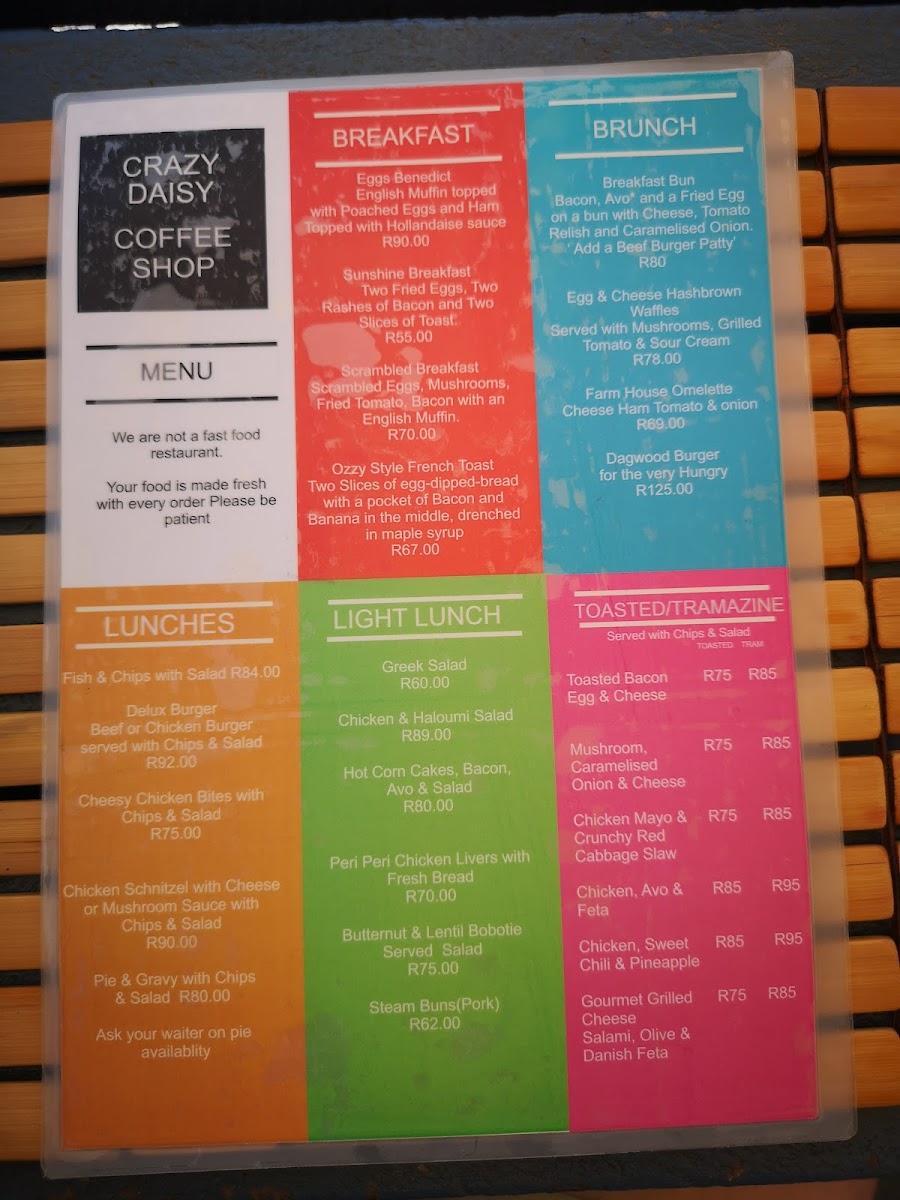 CRAZY
DAISY
COFFEE
SHOP
MENU
We are not a fast food
restaurant.
Your food is made fresh
with every order Please be
patient
BREAKFAST
Eggs Benedict
English Muffin topped
with Poached Eggs and Ham
Topped with Hollandaise sauce
R90.00
Sunshine Breakfast
Two Fried Eggs, Two
Rashes of Bacon and Two
Slices of Toast.
R55.00
Scrambled Breakfast
Scrambled Eggs, Mushrooms,
Fried Tomato, Bacon with an
English Muffin.
R70.00
Ozzy Style French Toast
Two Slices of egg-dipped-bread
with a pocket of Bacon and
Banana in the middle, drenched
in maple syrup
R67.00
BRUNCH
Breakfast Bun
Bacon, Avo* and a Fried Egg
on a bun with Cheese, Tomato
Relish and Caramelised Onion.
' Add a Beef Burger Patty'
R80
Egg & Cheese Hashbrown
Waffles
Served with Mushrooms, Grilled
Tomato & Sour Cream
R78.00
Farm House Omelette
Cheese Ham Tomato & onion
R69.00
Dagwood Burger
for the very Hungry
R125.00
LUNCHES
Fish & Chips with Salad R84.00
Delux Burger
Beef or Chicken Burger
served with Chips & Salad
R92.00
Cheesy Chicken Bites with
Chips & Salad
R75.00
Chicken Schnitzel with Cheese
or Mushroom Sauce with
Chips & Salad
R90.00
Pie & Gravy with Chips
& Salad R80.00
Ask your waiter on pie
availablity
LIGHT LUNCH
Greek Salad
R60.00
Chicken & Haloumi Salad
R89.00
Hot Corn Cakes, Bacon,
Avo & Salad
R80.00
Peri Peri Chicken Livers with
Fresh Bread
R70.00
Butternut & Lentil Bobotie
Served Salad
R75.00
Steam Buns(Pork)
R62.00
TOASTED/TRAMAZINE
Served with Chips & Salad
TOASTED TRAM
Toasted Bacon R75 R85
Egg & Cheese
Mushroom, R75 R85
Caramelised
Onion & Cheese
Chicken Mayo & R75 R85
Crunchy Red
Cabbage Slaw
Chicken, Avo & R85 R95
Feta
Chicken, Sweet R85 R95
Chili & Pineapple
Gourmet Grilled R75 R85
Cheese
Salami, Olive &
Danish Feta